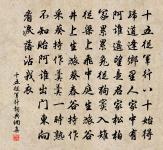 十五從軍行八十始得
歸道逢鄉里人家中有
阿誰遙望是君家松柏
冢累累兔從狗竇入雉
從梁上飛中庭生旅谷
井上生旅葵舂谷持作飯
采葵持作羹羹飯一時熟
不知貽阿誰出門東向
看淚落沾我衣
十五從軍行